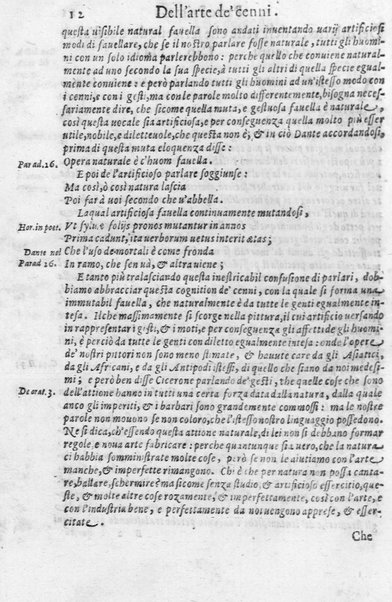 12 Dell'arte de' cenni.
questa uisibile natural fauella sono andati inuentando uarij artificiosi
modi di fauellare, che se il nostro parlare fosse naturale, tutti gli huomi
ni con un solo idioma parlerebbono: perche quello che conuiene natural-
mente ad uno secondo la sua specie, à tutti gli altri di quella specie egual-
mente conuiene: e però parlando tutti gli huomini ad un'istesso modo con
i cenni, e con i gesti, ma con le parole molto differentemente, bisogna neces-
sariamente dire, che sicome quella muta, e gestuosa fauella è naturale,
così questa uocale sia artificiosa, e per conseguenza quella molto più esser
utile, nobile, e diletteuole, che questa non è, & in ciò Dante accordandosi,
prima di questa muta eloquenza disse:
Parad. 26. Opera naturale è c'huom fauella.
E poi de l'artificioso parlare soggiunse:
Ma così, ò così natura lascia
Poi far à uoi secondo che u'abbella.
La qual artificiosa fauella continuamente mutandosi,
Hor. in poet. Vt syluæ folijs pronos mutantur in annos
Prima cadunt, ita uerborum uetus interit ætas;
Dante nel Che l'uso de mortali è come fronda
Parad 26. In ramo, che sen uà, & altra uiene;
E tanto più tralasciando questa inestricabil confusione di parlari, dob-
biamo abbracciar questa cognition de' cenni, con la quale si forma una
immutabil fauella, che naturalmente è da tutte le genti egualmente in-
tesa. Il che massimamente si scorge nella pittura, il cui artificio uersando
in rappresentar i gesti, & i moti, e per conseguenza gli affetti de gli huomi
ni, è perciò da tutte le genti con diletto egualmente intesa: onde l'opere
de' nostri pittori non sono meno stimate, & hauute care da gli Asiatici,
da gli Africani, e da gli Antipodi istessi, di quello che siano da noi medesi-
mi; e però ben disse Cicerone parlando de' gesti, che quelle cose che sono
De orat. 3. dell'attione hanno in tutti una certa forza data dalla natura, dalla quale
anco gli imperiti, & i barbari sono grandemente commossi: ma le nostre
parole non mouono se non coloro, che l'istesso nostro linguaggio possedono.
Ne si dica, ch'essendo questa attione naturale, di lei non si debbano formar
regole, e noua arte fabricare: perche quantunque sia uero, che la natura
ci habbia somministrate molte cose, però se non le aiutiamo con l'arte
manche, & imperfette rimangono. Chi è che per natura non possa canta-
re, ballare, schermire? ma sicome senza studio, & artificioso essercitio, que-
ste, & molte altre cose rozamente, & imperfettamente, così con l'arte, e
con l'industria bene, e perfettamente da noi uengono apprese, & esser-
citate.
Che